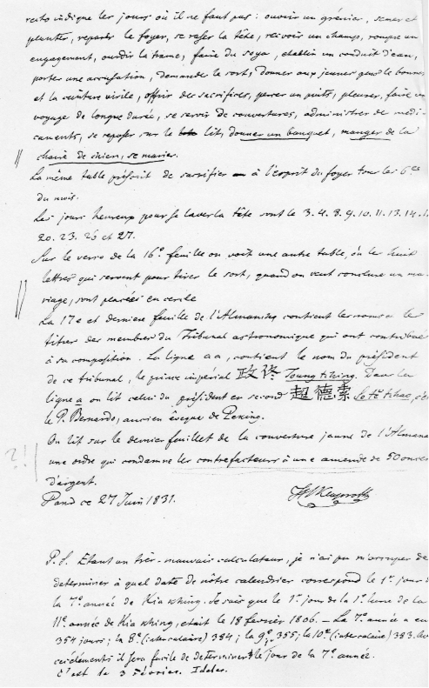 recto indique les jours où il ne faut pas: ouvrir un grénier, semer et
planter, reparer le foyer, se raser la tête, recevoir un champs, rompre un
engagement, ourdir la trame, faire du soya, etablir un conduit d'eau,
porter une accusation, demander le sort, donner aux jeunes gens le bonnet
et la ceinture virile, offrir des sacrifices, percer un puits, pleurer, faire un
voyage de longue durée, se servir de couvertures, administrer de medi-
caments, se reposer sur le lit, donner un banquet, manger de la
chair de chien, se marier.
La même table préscrit de sacrifier à l'esprit du foyer tous les 6es
du mois.
Les jours heureux pour se laver la tête sont le 3. 4. 8. 9. 10. 11. 13. 14.
20. 23. 26 et 27.
Sur le verso de la 16e feuille on voit une autre table, où les huit
lettres qui servent pour tirer le sort, quand on veut conclure un ma-
riage, sont placées en cercle
La 17e et derniere feuille de l'Almanac contient les noms et les
titres des membres du Tribunal astronomique qui ont contribué
à sa composition. La ligne aa, contient le nom du président
de ce tribunal, le prince impérial Dans la
ligne a on lit celui du président en second 德 索
le P. Bernardo, ancien évêque de Peking.
On lit sur le dernier feuillet de la couverture jaune de l'Almana
une ordre qui condamne les contrefacteurs à une amende de 50 onces
d'argent.
?!
Paris ce 27 Juin 1831. Klaproth
P.S. Etant un très-mauvais calculateur, je n'ai pu m'occuper de
determiner à quel date de notre calendrier correspond le 1er jour de
la 7e année de Kia khing. Je sais que le 1er jour de la 1e lune de la
11e année de Kia khing, etait le 18 fevrier 1806. — La 7e année a eu
354 jours; la 8e (intercalaire) 384; la 9e 355; la 10e (intercalaire) 383. Av
ces élements il sera facile de determiner le jour de la 7e année.
C'est de 3 Février. Ideler.